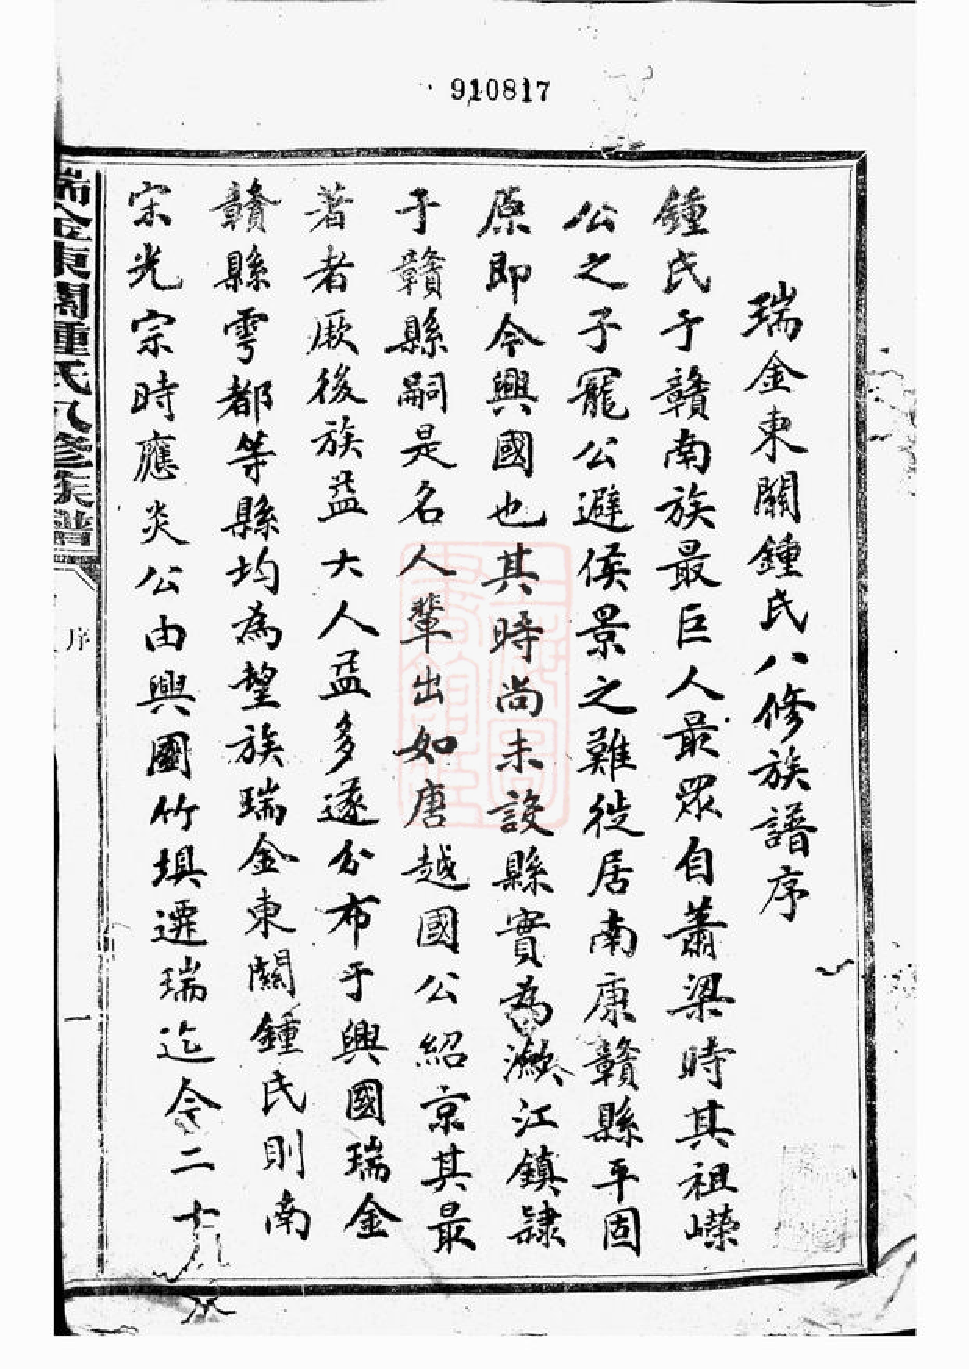 910817
瑞金東關鍾氏八修族譜序
鍾氏于贛南族最巨人最眾自蕭梁時其祖嶸
公之子寵公避侯景之難徙居南康贛縣平固
原即今興國也其時尚未設縣實為瀲江鎮隷
于贛縣嗣是名人輩出如唐越國公紹京其最
著者厥後族益大人益多遂分布于興國瑞金
贛縣雩都等縣均為望族瑞金東關鍾氏則南
宋光宗時應炎公由興國竹垻遷瑞迄今二十
瑞金東關鍾氏八修族譜
序
一